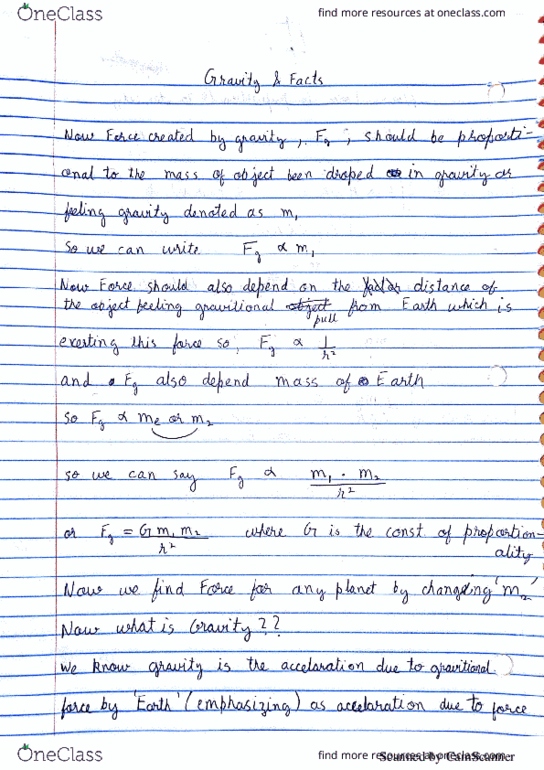 OneClass find more resources at oneclass.com
Gravity & Facts
Now Force created by gravity, Fg, should be proporti-
onal to the mass of object been droped in gravity or
feeling gravity denoted as m₁
So we can write Fg ∝ m₁
Now Force should also depend on the distance of
the object feeling gravitional object from Earth which is
pull
exerting this force so; Fg ∝ 1/r²
and Fg also depend mass of Earth
So Fg ∝ me or m₂
so we can say Fg ∝ m₁ . m₂ / r²
or Fg = G m₁ m₂ / r² where G is the const of proportion-
ality
Now we find Force for any planet by changeing 'm₂'
Now what is Gravity??
We know gravity is the accelaration due to gravitional
force by 'Earth' (emphasizing) as accelaration due to force
OneClass find more resources at oneclass.com
Scanned by CamScanner